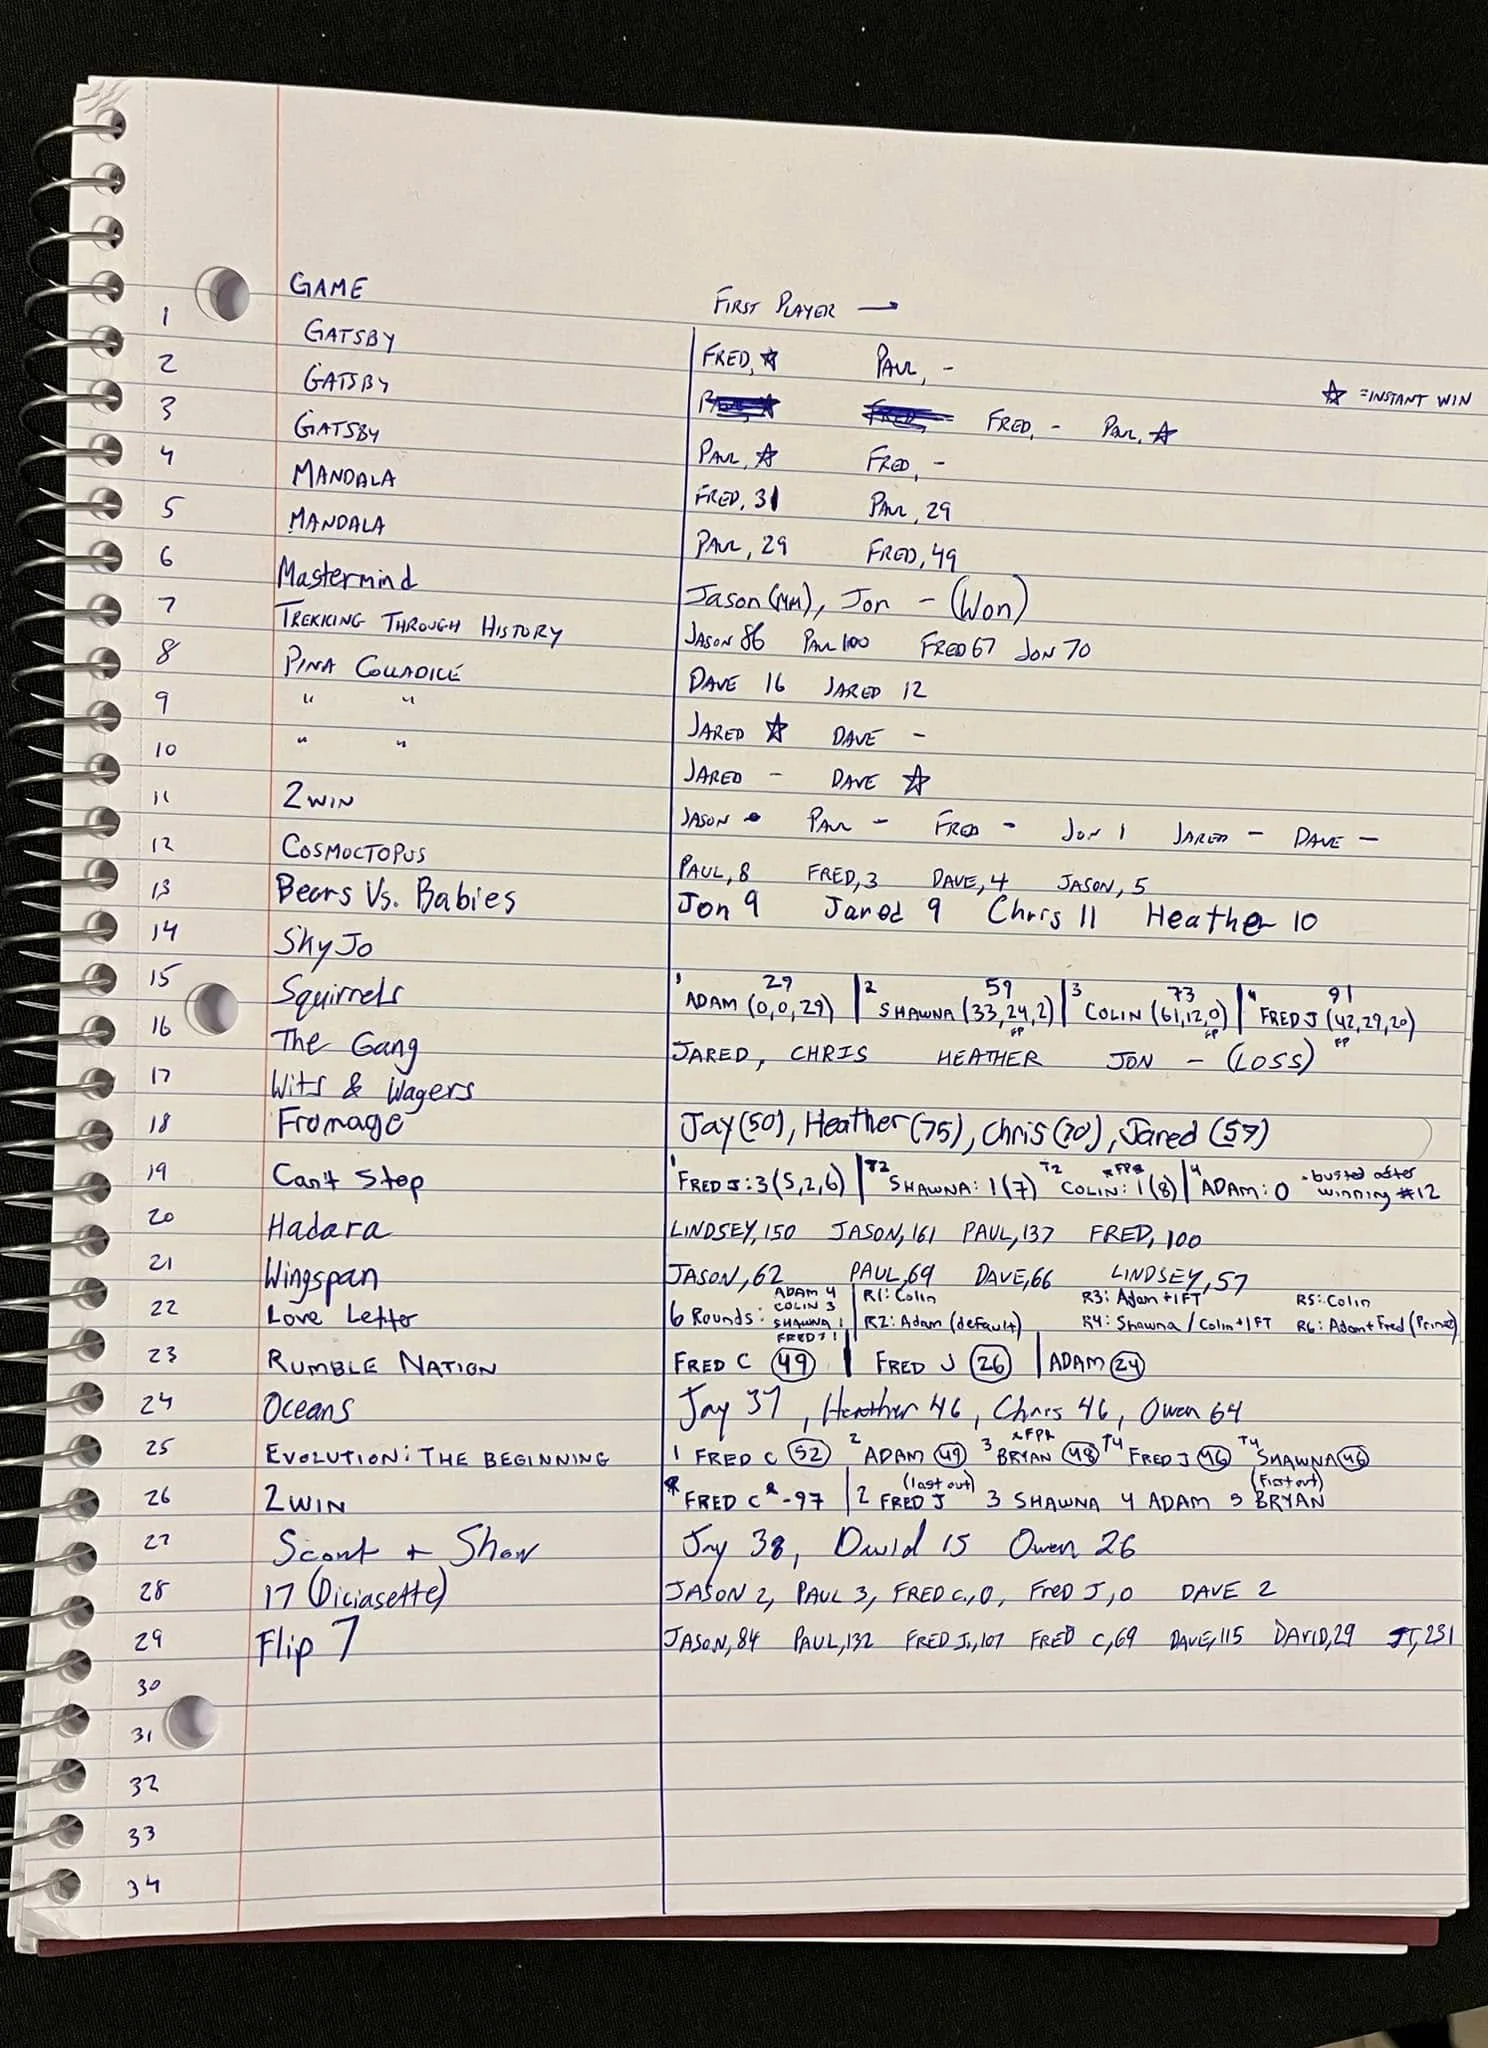 GAME FIRST PLAYER →
1 GATSBY FRED, ☆ PAUL, -
2 GATSBY FRED, - PAUL, ☆ ☆ = INSTANT WIN
3 GATSBY PAUL, ☆ FRED, -
4 MANDALA FRED, 31 PAUL, 29
5 MANDALA PAUL, 29 FRED, 49
6 Mastermind Jason (MM), Jon - (Won)
7 TREKKING THROUGH HISTORY JASON 86 PAUL 100 FRED 67 JON 70
8 PINA COLLADICE DAVE 16 JARED 12
9 " " JARED ☆ DAVE -
10 " " JARED - DAVE ☆
11 2 WIN JASON - PAUL - FRED - JON 1 JARED - DAVE -
12 COSMOCTOPUS PAUL, 8 FRED, 3 DAVE, 4 JASON, 5
13 Bears Vs. Babies Jon 9 Jared 9 Chris 11 Heather 10
14 SkyJo
15 Squirrels 1 ADAM (0,0,29) 29 | 2 SHAWNA (33,24,2) 59 FP | 3 COLIN (61,12,0) 73 FP | 4 FRED J (42,29,20) 91 FP
16 The Gang JARED, CHRIS HEATHER JON - (LOSS)
17 Wits & Wagers
18 Fromage Jay (50), Heather (75), Chris (70), Jared (57)
19 Can't Stop 1 FRED J: 3 (5,2,6) | T2 SHAWNA: 1 (7) T2 COLIN: 1 (8) *FP* | 4 ADAM: 0 - busted after winning #12
20 Hadara LINDSEY, 150 JASON, 161 PAUL, 137 FRED, 100
21 Wingspan JASON, 62 PAUL, 69 DAVE, 66 LINDSEY, 57
22 Love Letter 6 Rounds: ADAM 4 COLIN 3 SHAWNA 1 FRED J 1 | R1: Colin R2: Adam (default) R3: Adam +1FT R4: Shawna / Colin +1FT R5: Colin R6: Adam + Fred (Prince)
23 RUMBLE NATION FRED C (49) | FRED J (26) | ADAM (24)
24 Oceans Jay 37, Heather 46, Chris 46, Owen 64
25 EVOLUTION: THE BEGINNING 1 FRED C (52) 2 ADAM (49) 3 BRYAN (48) *FP* T4 FRED J (46) T4 SHAWNA (46)
26 2 WIN * FRED C * - 97 | 2 FRED J (last out) 3 SHAWNA 4 ADAM 5 BRYAN (First out)
27 Scout + Show Jay 38, David 15 Owen 26
28 17 (Diciasette) JASON 2, PAUL 3, FRED C., 0, FRED J, 0 DAVE 2
29 Flip 7 JASON, 84 PAUL, 132 FRED J., 107 FRED C, 69 DAVE, 115 DAVID, 29 JT, 231
30
31
32
33
34